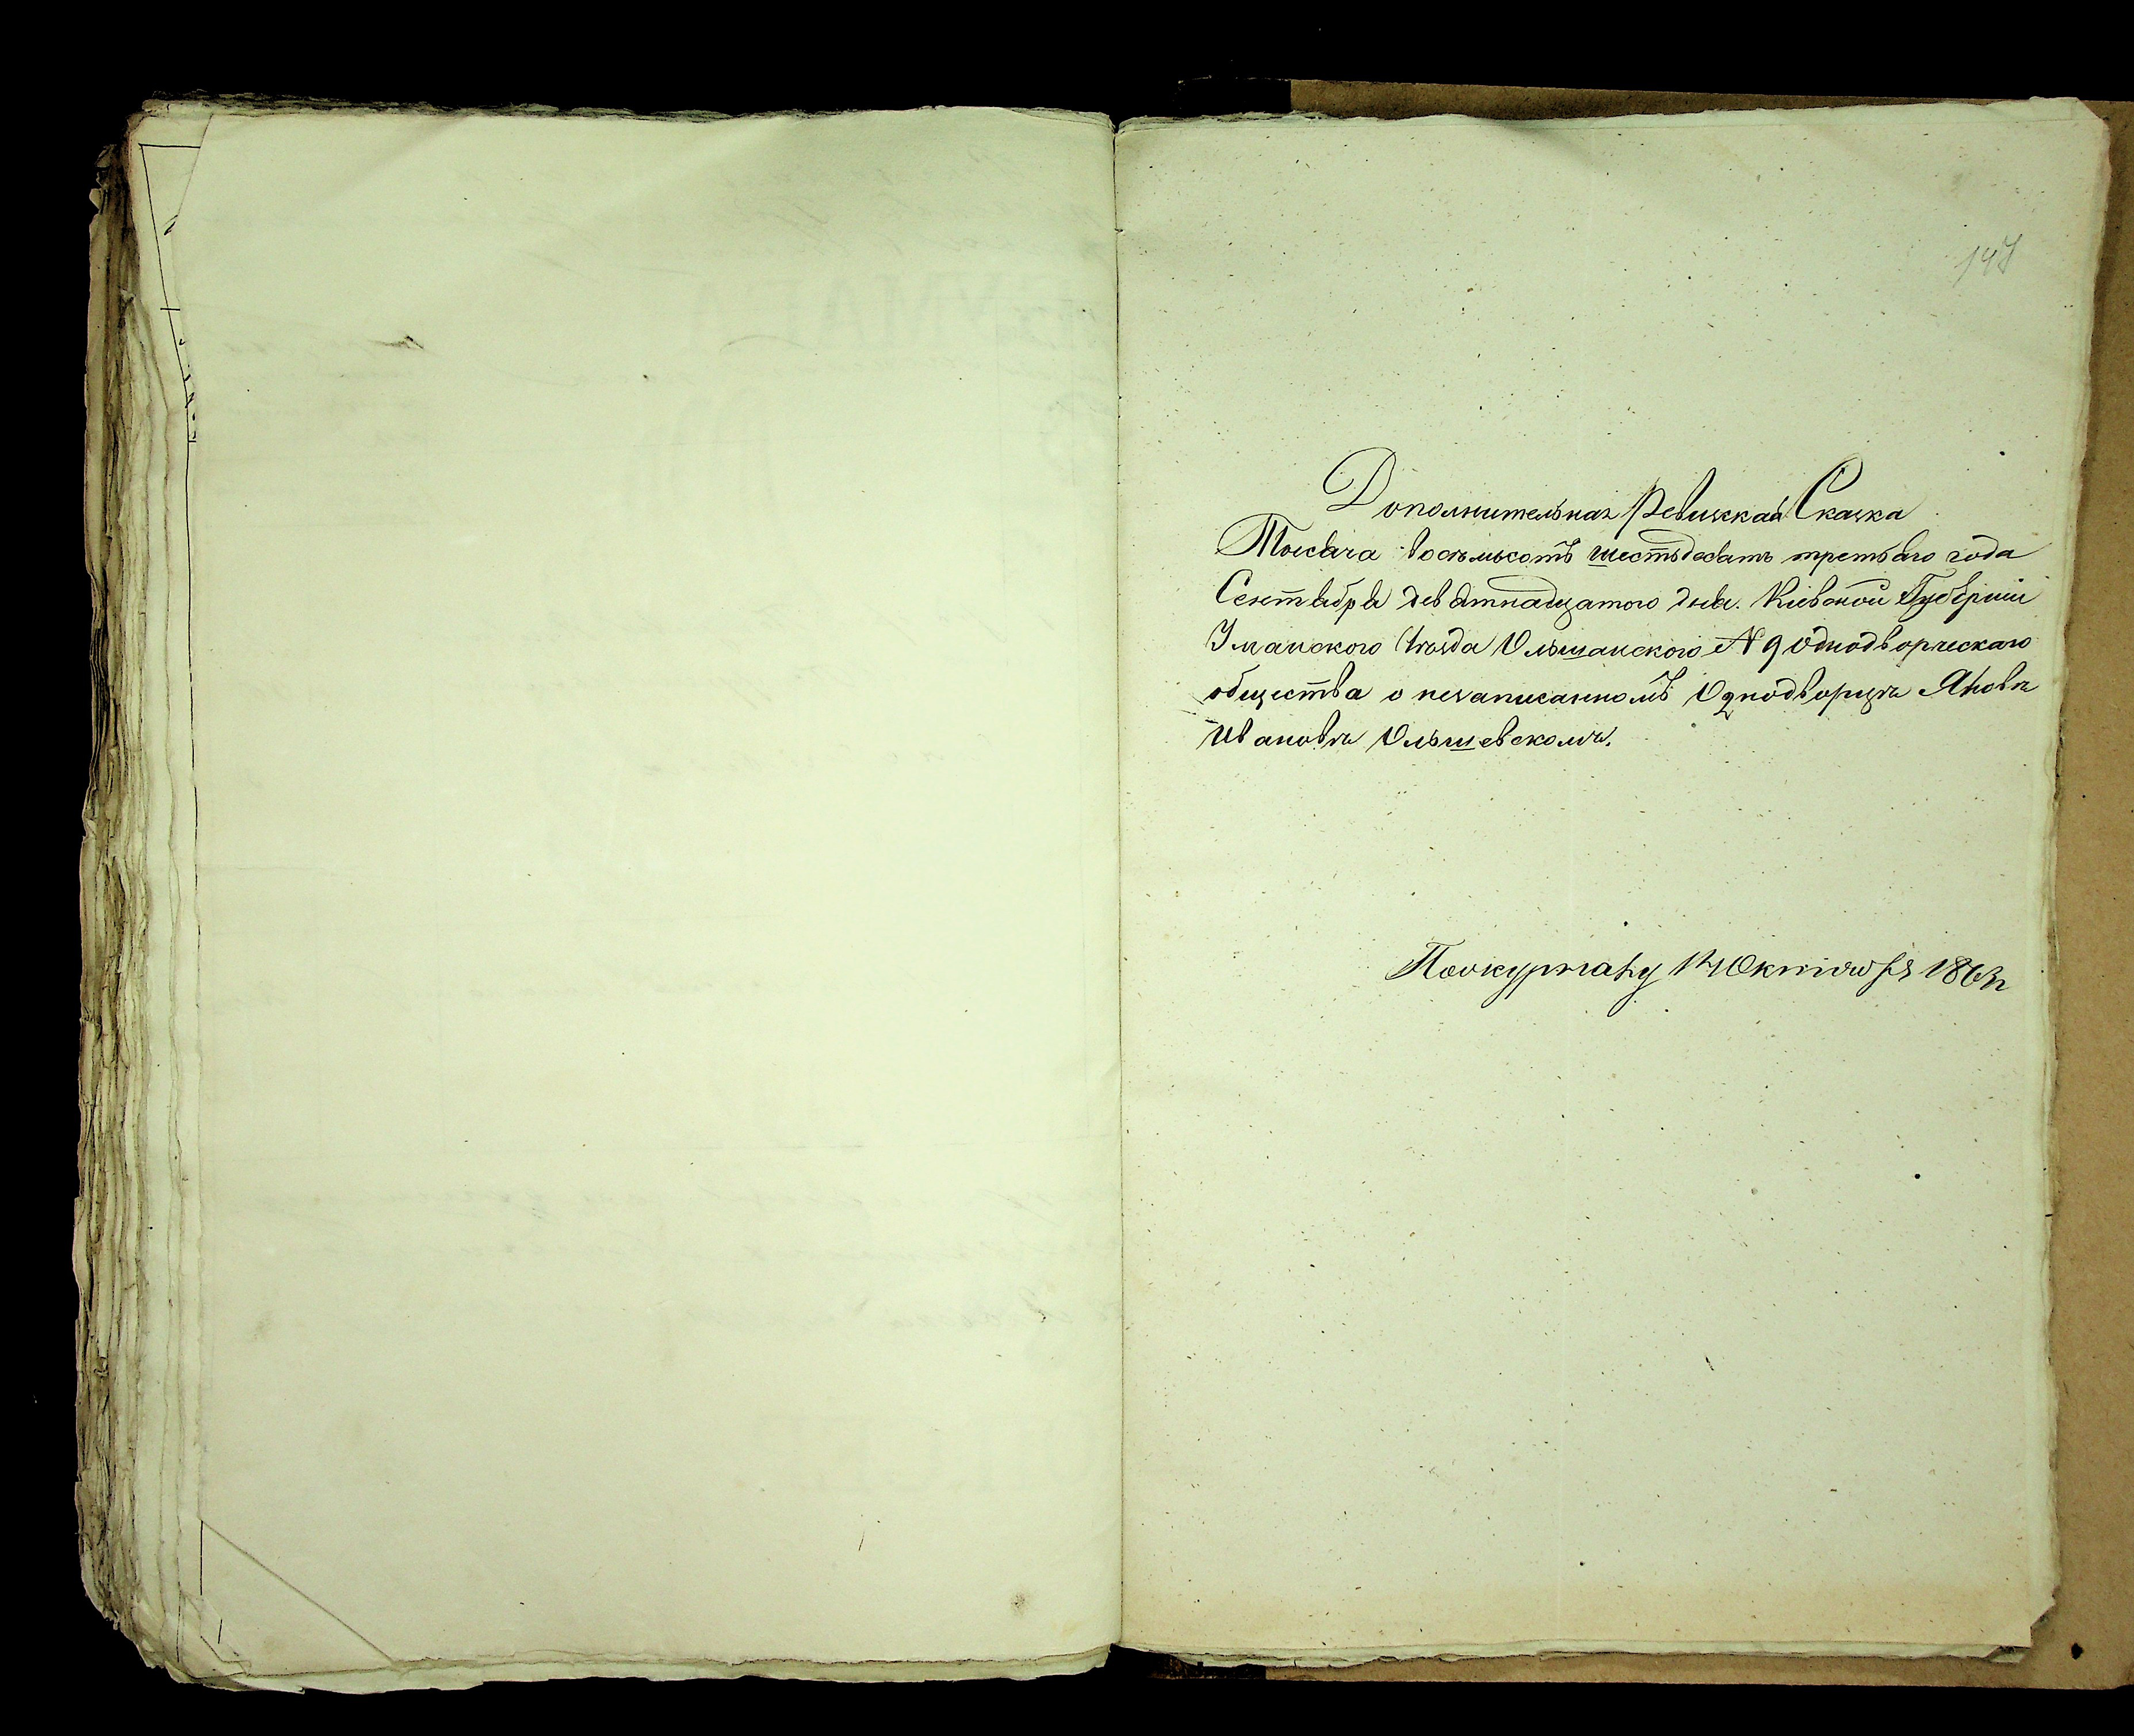 147
Дополнительная Ревизкая Сказка
Тысяча восъмьсотъ шестьдесятъ третьяго года
Сентября девятнадцатого дня. Кіевской Губерніи
Уманского Уѣзда Ольшанского № 9 Однодворческаго
общества о незаписанномъ Однодворцѣ Яковѣ
Ивановѣ Ольшевскомъ.
По журналу Октября 1863